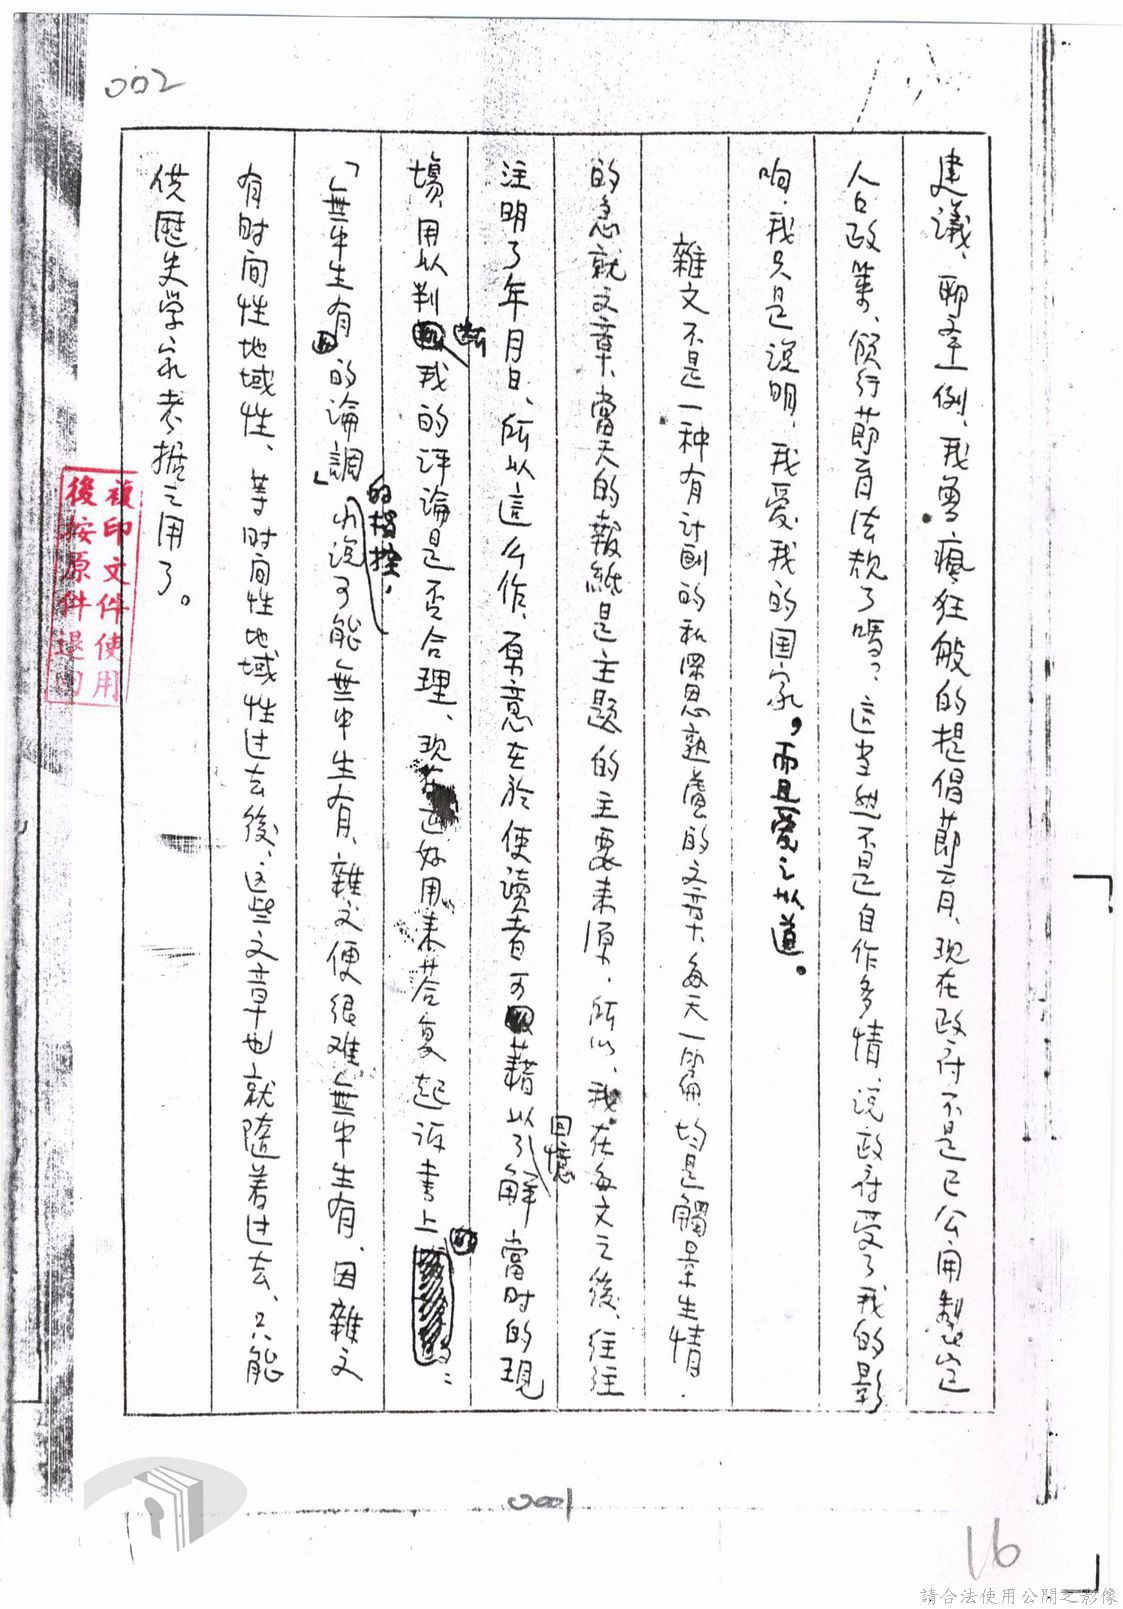 002
建議、聊举一例、我曾瘋狂般的提倡節育、現在政府不是已公開製定
人口政策、頒行節育法規了嗎？這当然不是自作多情、说政府受了我的影
响、我只是说明、我爱我的国家，而且爱之以道。
雜文不是一种有计劃的和深思熟慮的文章、每天一篇、均是觸景生情、
的急就文章、當天的報紙是主題的主要来原、所以、我在每文之後、往往
注明了年月日、所以這么作、原意在於使读者可藉以回憶當时的現
場、用以判断我的评論是否合理、現在正好用来荅复起诉書上的
「無中生有的論調」的指控，小说可能無中生有、雜文便很难無中生有、因雜文
有时间性地域性、等时间性地域性过去後、这些文章也就隨着过去、只能
供歷史学家考据之用了。
複印文件使用
後按原件退回
0001
16
請合法使用公開之影像